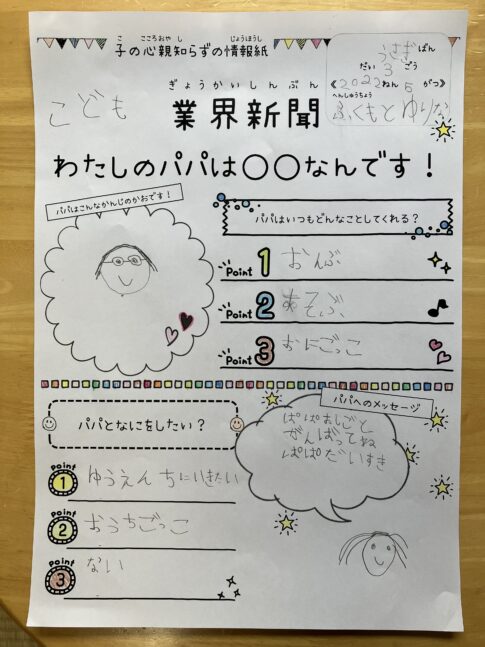 子の心親知らずの情報紙
こ こころおやし じょうほうし
うさぎばん
だい3ごう
《2022ねん5がつ》
へんしゅうちょう
ふくもとゆりな
こども
ぎょうかいしんぶん
業界新聞
わたしのパパは〇〇なんです!
パパはこんなかんじのかおです!
パパはいつもどんなことしてくれる?
Point 1 おんぶ
Point 2 あそぶ
Point 3 おにごっこ
パパとなにをしたい?
Point 1 ゆうえんちにいきたい
Point 2 おうちごっこ
Point 3 ない
パパへのメッセージ
ぱぱおしごと
がんばってね
ぱぱだいすき